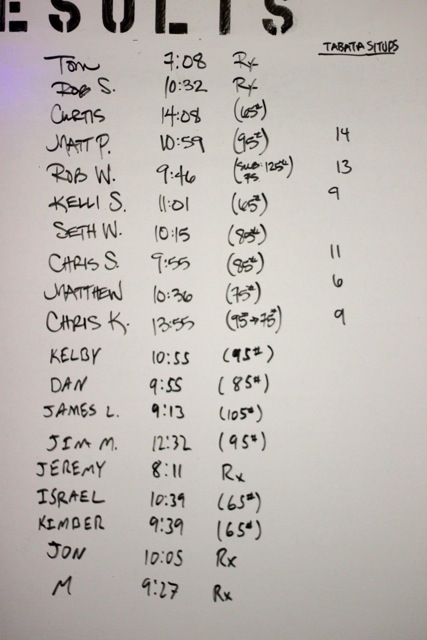 ESULTS
TABATA SITUPS
TOM 7:08 Rx
ROB S. 10:32 Rx
CURTIS 14:08 (65#)
MATT P. 10:59 (95#) 14
ROB W. 9:46 (SUB: 125# 75 13
KELLI S. 11:01 (65#) 9
SETH W. 10:15 (85#)
CHRIS S. 9:55 (85#) 11
MATTHEW 10:36 (75#) 6
CHRIS K. 13:55 (95#→75#) 9
KELBY 10:55 (95#)
DAN 9:55 (85#)
JAMES L. 9:13 (105#)
JIM M. 12:32 (95#)
JEREMY 8:11 Rx
ISRAEL 10:39 (65#)
KIMBER 9:39 (65#)
JON 10:05 Rx
M 9:27 Rx